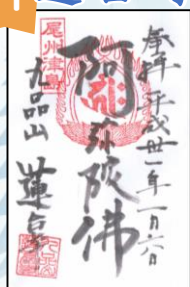 奉拝 平成丗一年一月六日
阿弥陀佛
尾州津島
九品山 蓮台寺